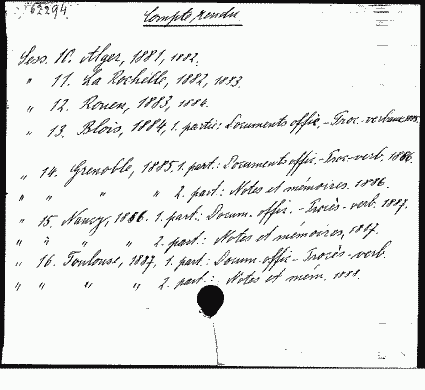 62294.
Compte rendu
Sess. 10. Alger, 1881, 1882.
" 11. La Rochelle, 1882, 1883.
" 12. Rouen, 1883, 1884.
" 13. Blois, 1884, 1. partie: Documents offic. - Proc.-verbaux
" 14. Grenoble, 1885. 1. part: Documents offic. - Proc-verb. 1886.
" " " " 2. part: Notes et mémoires. 1886.
" 15. Nancy, 1886. 1. part: Docum. offic. - Procès-verb. 1887.
" " " " 2. part.: Notes et memoires, 1887.
" 16. Toulouse, 1887, 1. part: Docum. offic. - Procès-verb.
" " " " 2. part: Notes et mém. 1888.